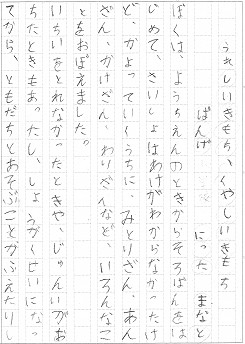 うれしいきもち、くやしいきもち
ばんげ　にった　まなと
ぼくは、ようちえんのときからそろばんをは
じめて、さいしょはわけがわからなかったけ
ど、かよっていくうちに、みとりざん、あん
ざん、かけざん、わりざんなど、いろんなこ
とをおぼえました。
いちいをとれなかったときや、じゅんいがお
ちたときもあったし、しょうがくせいになっ
てから、ともだちとあそぶことがふえたりし